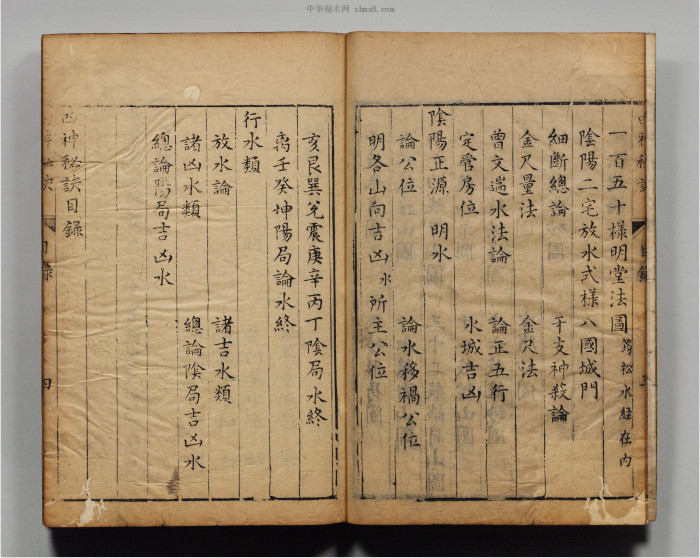 中华秘术网 zhms8.com
一百五十様明堂法圖 筠松水經在内
陰陽二宅放水式樣八國城門
細斷總論 干支神殺論
金尺量法 金尺法
曾文遄水法論 論正五行
定管房位 水城吉凶
陰陽正源 明水
論公位 論水移禍公位
明各山向吉凶水所主公位
亥艮巽兌震庚辛丙丁陰局水終
离壬癸坤陽局論水終
行水類
放水論 諸吉水類
諸凶水類 總論陰局吉凶水
總論陽局吉凶水
四神秘訣目録
目録